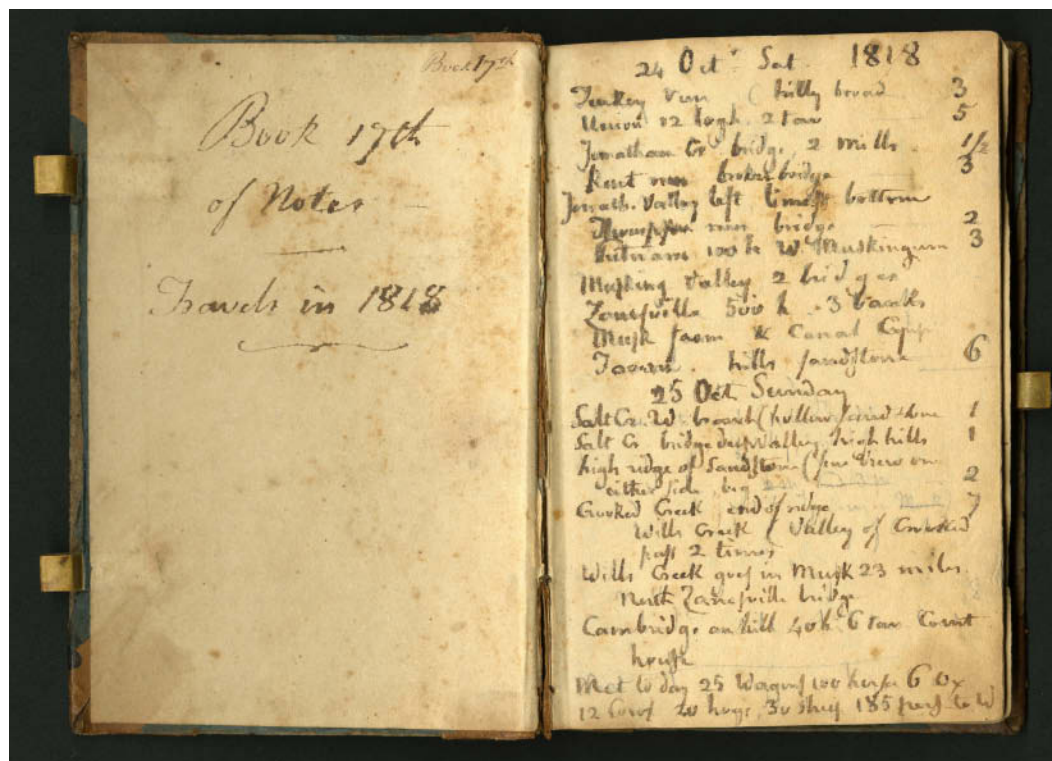 Book 17th
Book 17th
of Notes
Travels in 1818
24 Oct. Sat. 1818
Turkey Run ( hilly broad 3
Union 12 logh. 2 tav 5
Jonathan Cr bridge, 2 mills 1/2
Kent run broken bridge 3
Jonath. Valley left limest bottom
Thompson run bridge 2
Putnam 100 h W. Muskingum 3
Musking Valley 2 bridges
Zanesville 500 h. 3 banks
Musk foam & Canal
Tavern. hills sandstone 6
25 Oct. Sunday
Salt Cr. W. branch ( hollow sandstone 1
Salt Cr. bridge deep Valley, high hills 1
high ridge of Sandstone ( fine view on
either side, big 2
Crooked Creek end of ridge 7
Wills Creek ( Valley of Crooked
pass 2 times
Wills Creek goes in Musk 23 miles
North Zanesville bridge
Cambridge on hill 40 h. 6 tav Court
house
Met to day 25 Wagons 100 horse 6 Ox
12 Cows 20 hogs, 30 sheep 185 pers to W